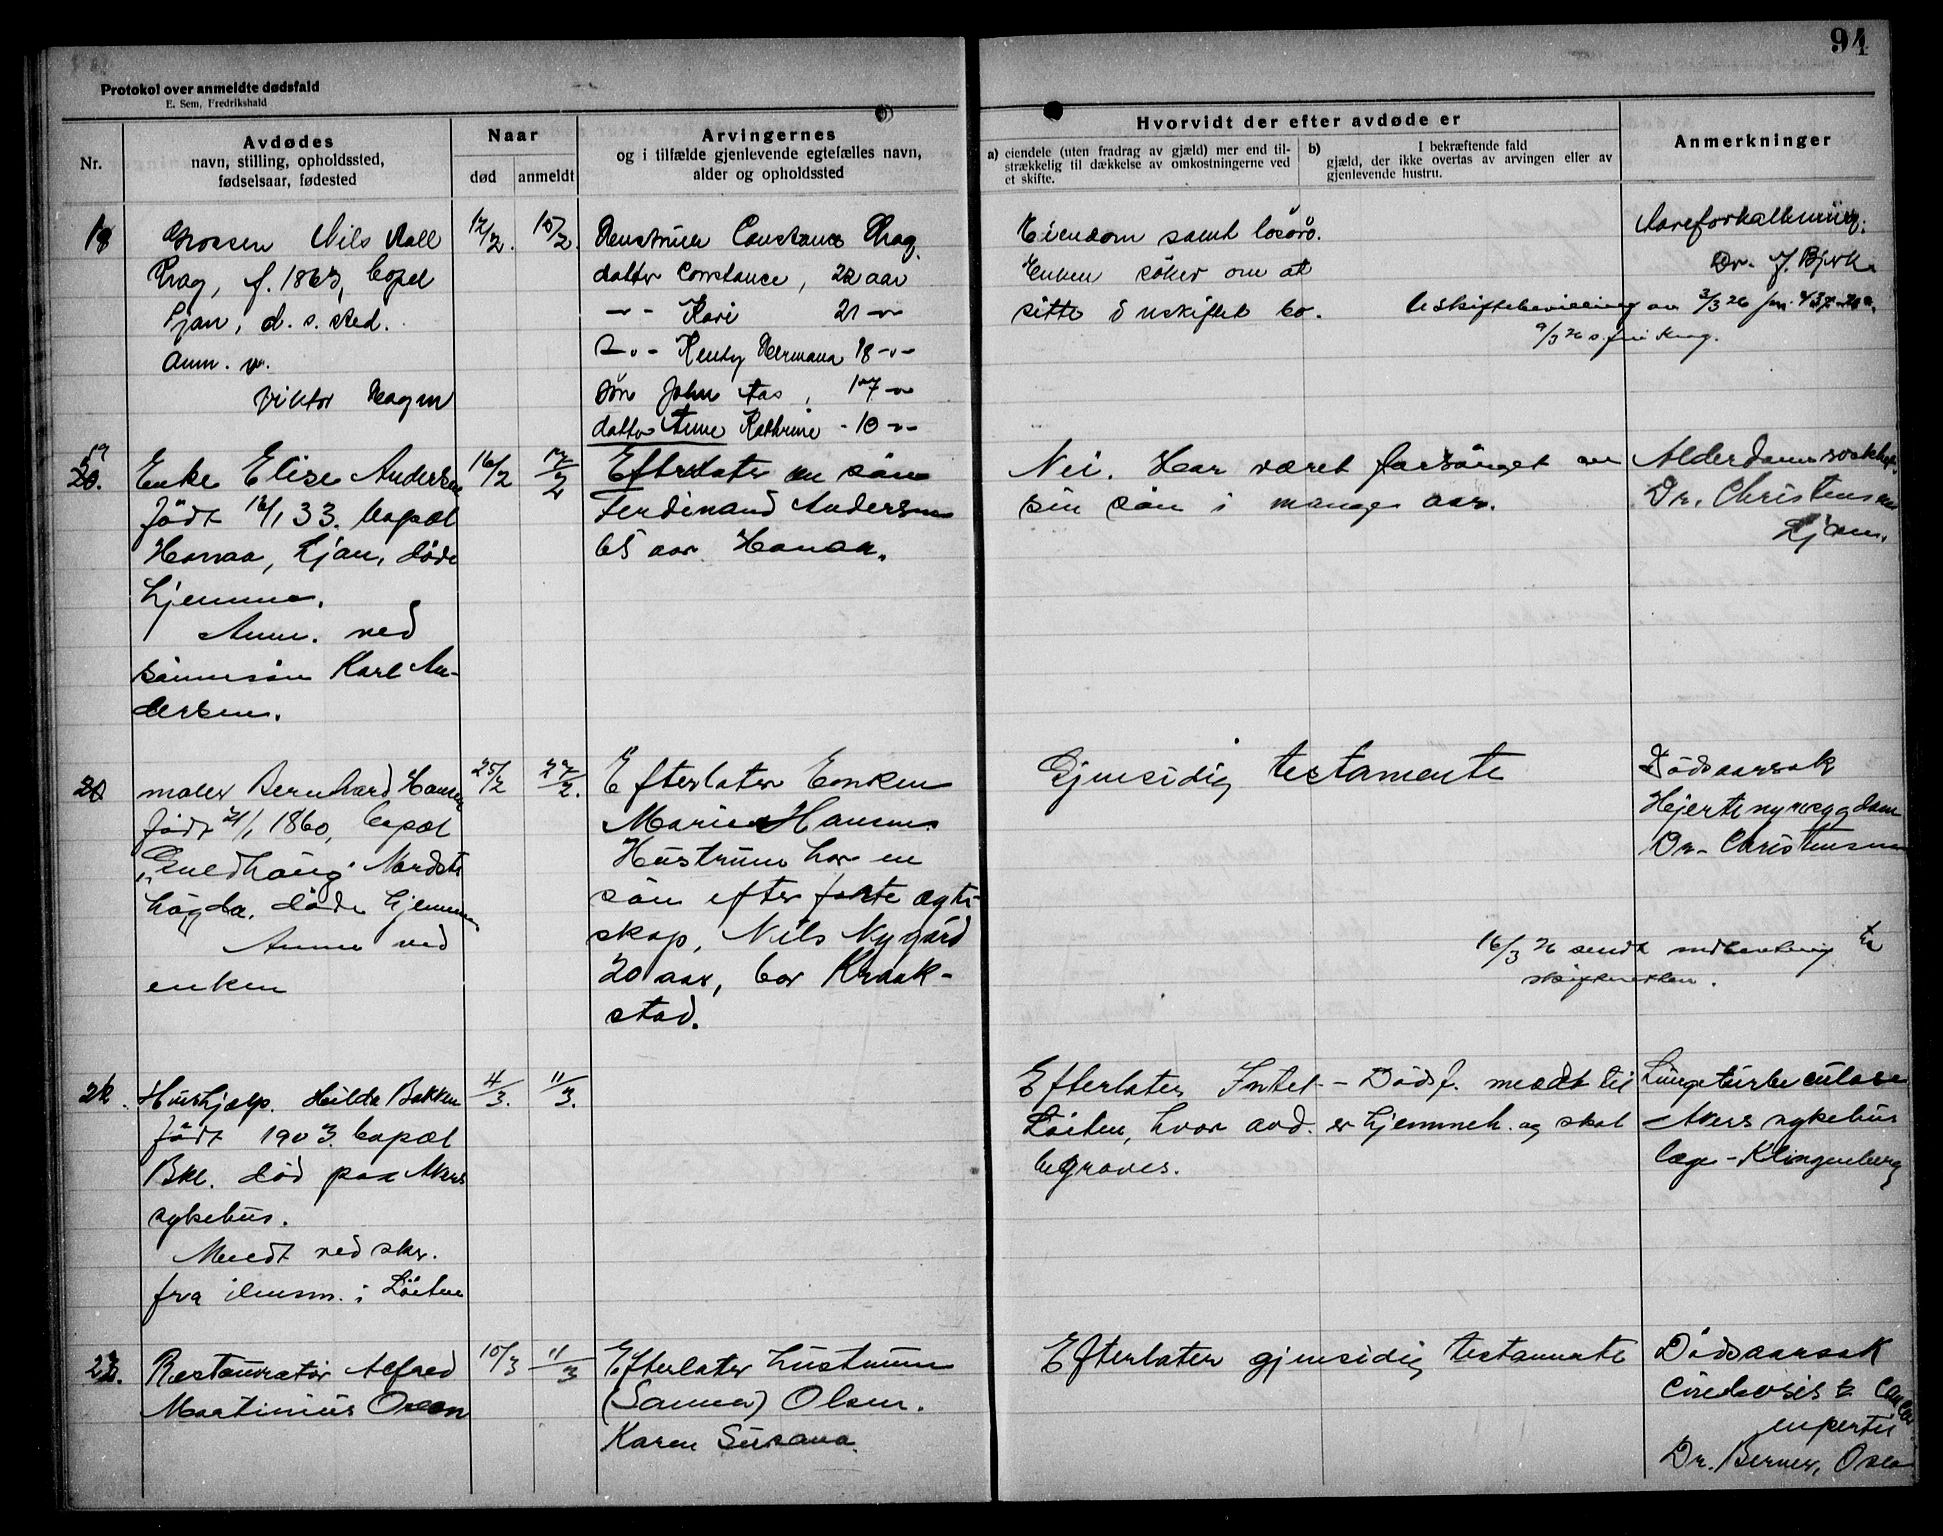 94
Protokol over anmeldte dødsfald
E. Sem, Fredrikshald
Nr.
Avdødes
navn, stilling, opholdssted,
fødselsaar, fødested
Naar
død
anmeldt
Arvingernes
og i tilfælde gjenlevende egtefælles navn,
alder og opholdssted
Hvorvidt der efter avdøde er
a) eiendele (uten fradrag av gjæld) mer end til-
strækkelig til dækkelse av omkostningerne ved
et skifte.
b) I bekræftende fald
gjæld, der ikke overtas av arvingen eller av
gjenlevende hustru.
Anmerkninger
18
Grosserer Nils Aall
Krag, f. 1863, bopel
Ljan, d. s. sted.
Anm. v.
Viktor
12/2. 15/2.
Hustruen Constance Krag.
datter Constance, 22 aar
-"- Kari 21 -"-
-"- Hermana 18 -"-
Søn John Aas, 17 -"-
datter Anne Kathrine - 10 -"-
Eiendom samt løsøre.
Enken søker om at
sitte i uskiftet bo.
Aareforkalkning.
Dr. J. Bjerke
Uskiftebevilling av 3/3 26
9/3 26 s. fru Krag.
19
Enke Elise Andersen
født 12/1 33. bopæl
Ljan, døde
hjemme.
Anm. ved
sønnesøn Karl An-
dersen.
16/2 17/2
Efterlater en søn
Ferdinand Andersen
65 aar.
Nei. Har været forsørget av
sin søn i mange aar.
Alderdomssvakhet.
Dr. Christensen
Ljan.
20
maler Bernhard Hansen
født 21/1 1860, bopæl
"Guldhaug" Nordst.
høgda. døde hjemme
Anm ved
enken
25/2 27/2.
Efterlater Enken
Marie Hansen.
Hustruen har en
søn efter første ægte-
skap, Nils Nygård
20 aar, bor Kraak-
stad.
Gjensidig testamente
Dødsaarsak
Dr. Christensen
16/3 26 sendt indberetning til
skifteretten.
21.
Hushjælp. Hilda Bakken
født 1903. bopæl
Bkl. død paa Akers
sykehus.
Meldt ved skr.
fra lensm. i Løiten
4/3. 11/3.
Efterlater Intet - Dødsf. meldt til
Løiten, hvor avd. er hjemmeh. og skal
begraves.
Lungetuberculose
Akers sykehus
læge - Klingenberg
22.
Restauratør Alfred
Martinius Olsen
10/3 11/3
Efterlater hustruen
(Sanna) Olsen.
Karen Susana.
Efterlater gjensidig testamente
Dødsaarsak
Dr. Berner, Oslo